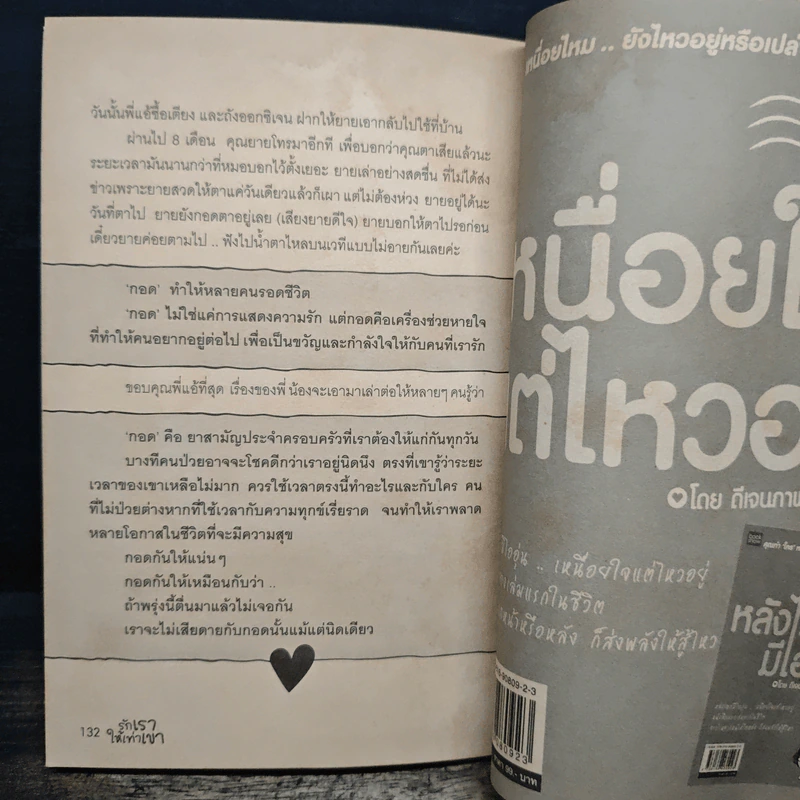 วันนั้นพี่แอ้ซื้อเตียง และถังออกซิเจน ฝากให้ยายเอากลับไปใช้ที่บ้าน
ผ่านไป 8 เดือน คุณยายโทรมาอีกที เพื่อบอกว่าคุณตาเสียแล้วนะ
ระยะเวลามันนานกว่าที่หมอบอกไว้ตั้งเยอะ ยายเล่าอย่างสดชื่น ที่ไม่ได้ส่ง
ข่าวเพราะยายสวดให้ตาแค่วันเดียวแล้วก็เผา แต่ไม่ต้องห่วง ยายอยู่ได้นะ
วันที่ตาไป ยายยังกอดตาอยู่เลย (เสียงยายดีใจ) ยายบอกให้ตาไปรอก่อน
เดี๋ยวยายค่อยตามไป .. ฟังไปน้ำตาไหลบนเวทีแบบไม่อายกันเลยค่ะ
'กอด' ทำให้หลายคนรอดชีวิต
'กอด' ไม่ใช่แค่การแสดงความรัก แต่กอดคือเครื่องช่วยหายใจ
ที่ทำให้คนอยากอยู่ต่อไป เพื่อเป็นขวัญและกำลังใจให้กับคนที่เรารัก
ขอบคุณพี่แอ้ที่สุด เรื่องของพี่ น้องจะเอามาเล่าต่อให้หลายๆ คนรู้ว่า
'กอด' คือ ยาสามัญประจำครอบครัวที่เราต้องให้แก่กันทุกวัน
บางทีคนป่วยอาจจะโชคดีกว่าเราอยู่นิดนึง ตรงที่เขารู้ว่าระยะ
เวลาของเขาเหลือไม่มาก ควรใช้เวลาตรงนี้ทำอะไรและกับใคร คน
ที่ไม่ป่วยต่างหากที่ใช้เวลากับความทุกข์เรี่ยราด จนทำให้เราพลาด
หลายโอกาสในชีวิตที่จะมีความสุข
กอดกันให้แน่นๆ
กอดกันให้เหมือนกับว่า ..
ถ้าพรุ่งนี้ตื่นมาแล้วไม่เจอกัน
เราจะไม่เสียดายกับกอดนั้นแม้แต่นิดเดียว
132 รักเราให้เท่าเขา
เหนื่อยไหม .. ยังไหวอยู่หรือเปล่า
หนื่อยใ
ต่ไหวอ
โดย ดีเจนภาพ
ไออุ่น .. เหนื่อยใจแต่ไหวอยู่
เล่มแรกในชีวิต
หน้าหรือหลัง ก็ส่งพลังให้สู้ไหว
หลังไ
มีไอ
90809-2-3
90923
99.- บาท